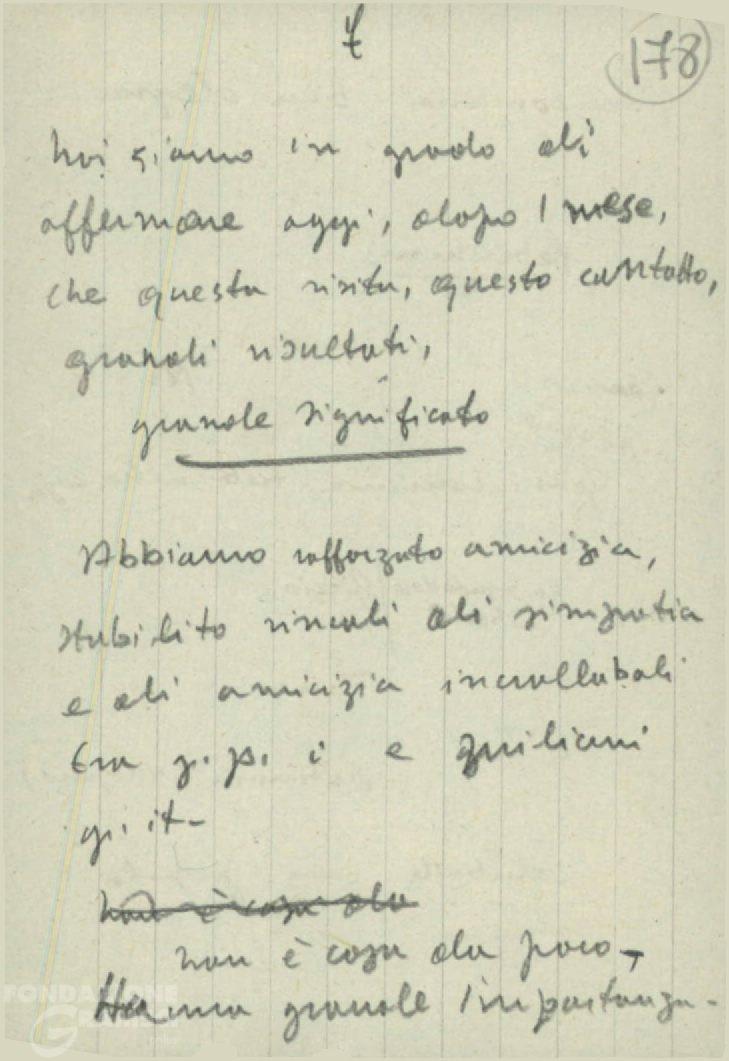 7
178
Noi siamo in grado di
affermare oggi, dopo 1 mese,
che questa visita, questo contatto,
grandi risultati,
grande significato
Abbiamo rafforzato amicizia,
stabilito vincoli di simpatia
e di amicizia incrollabili
tra g. p. i e
g. it-
non è cosa da
non è cosa da poco-
Ha una grande importanza-
FONDAZIONE
GRAMSCI